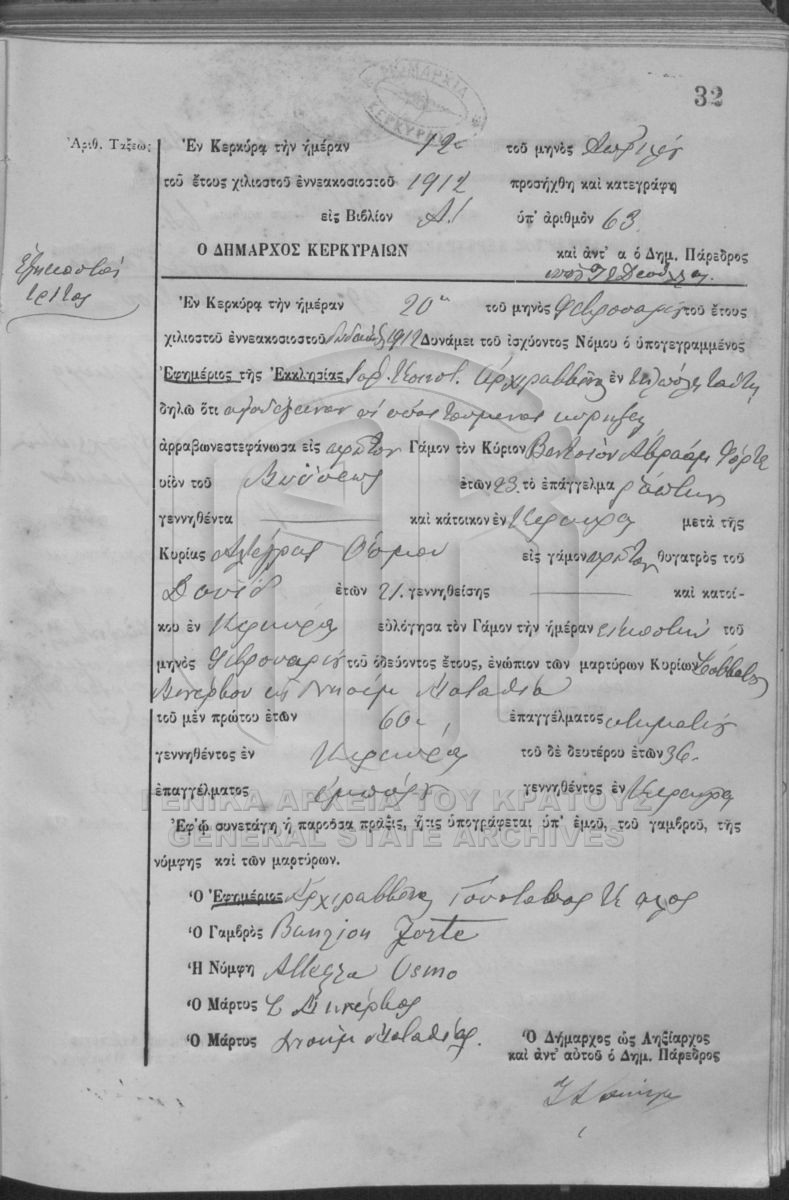 32
ΔΗΜΑΡΧΙΑ ΚΕΡΚΥΡΑΙΩΝ
Ἀριθ. Τάξεως
Ἐν Κερκύρᾳ τὴν ἡμέραν 12 τοῦ μηνὸς Ἀπριλίου
τοῦ ἔτους χιλιοστοῦ ἐννεακοσιοστοῦ 1912 προσήχθη καὶ κατεγράφη
εἰς Βιβλίον Α! ὑπ' ἀριθμὸν 63
Ο ΔΗΜΑΡΧΟΣ ΚΕΡΚΥΡΑΙΩΝ καὶ ἀντ' α ὁ Δημ. Πάρεδρος
Ἑξηκοστὸς
τρίτος
Ἐν Κερκύρᾳ τὴν ἡμέραν 20 τοῦ μηνὸς Φεβρουαρίου τοῦ ἔτους
χιλιοστοῦ ἐννεακοσιοστοῦ δωδεκάτου 1912 Δυνάμει τοῦ ἰσχύοντος Νόμου ὁ ὑπογεγραμμένος
Ἐφημέριος τῆς Ἐκκλησίας Ἰσρ. Κοινοτ. Ἀρχιραββῖνος ἐν τῇ πόλει ταύτῃ
δηλῶ ὅτι
ἀρραβωνεστεφάνωσα εἰς πρῶτον Γάμον τὸν Κύριον Βεντσιὸν Ἀβραὰμ Φόρτε
υἱὸν τοῦ Μωϋσέως ἐτῶν 23. τὸ ἐπάγγελμα ῥάπτην
γεννηθέντα καὶ κάτοικον ἐν Κερκύρᾳ μετὰ τῆς
Κυρίας Ἀλέγρας Ὄσμου εἰς γάμον πρῶτον θυγατρὸς τοῦ
Δαυὶδ ἐτῶν 21. γεννηθείσης καὶ κατοί-
κου ἐν Κερκύρᾳ εὐλόγησα τὸν Γάμον τὴν ἡμέραν εἰκοστὴν τοῦ
μηνὸς Φεβρουαρίου τοῦ ὁδεύοντος ἔτους, ἐνώπιον τῶν μαρτύρων Κυρίων Σάββατος
Βινέρβου καὶ Νισὶμ Ματαθία
τοῦ μὲν πρώτου ἐτῶν 60 ἐπαγγέλματος κτηματίου
γεννηθέντος ἐν Κερκύρᾳ τοῦ δὲ δευτέρου ἐτῶν 36.
ἐπαγγέλματος ἐμπόρου γεννηθέντος ἐν Κερκύρᾳ
ΓΕΝΙΚΑ ΑΡΧΕΙΑ ΤΟΥ ΚΡΑΤΟΥΣ
Ἐφ' ᾧ συνετάγη ἡ παροῦσα πρᾶξις, ἥτις ὑπογράφεται ὑπ' ἐμοῦ, τοῦ γαμβροῦ, τῆς
GENERAL STATE ARCHIVES
νύμφης καὶ τῶν μαρτύρων.
Ὁ Ἐφημέριος Ἀρχιραββῖνος
Ὁ Γαμβρὸς Banzion Forte
Ἡ Νύμφη Allegra Osmo
Ὁ Μάρτυς
Ὁ Μάρτυς Νισὶμ Ματαθίας.
Ὁ Δήμαρχος ὡς Ληξίαρχος
καὶ ἀντ' αὐτοῦ ὁ Δημ. Πάρεδρος